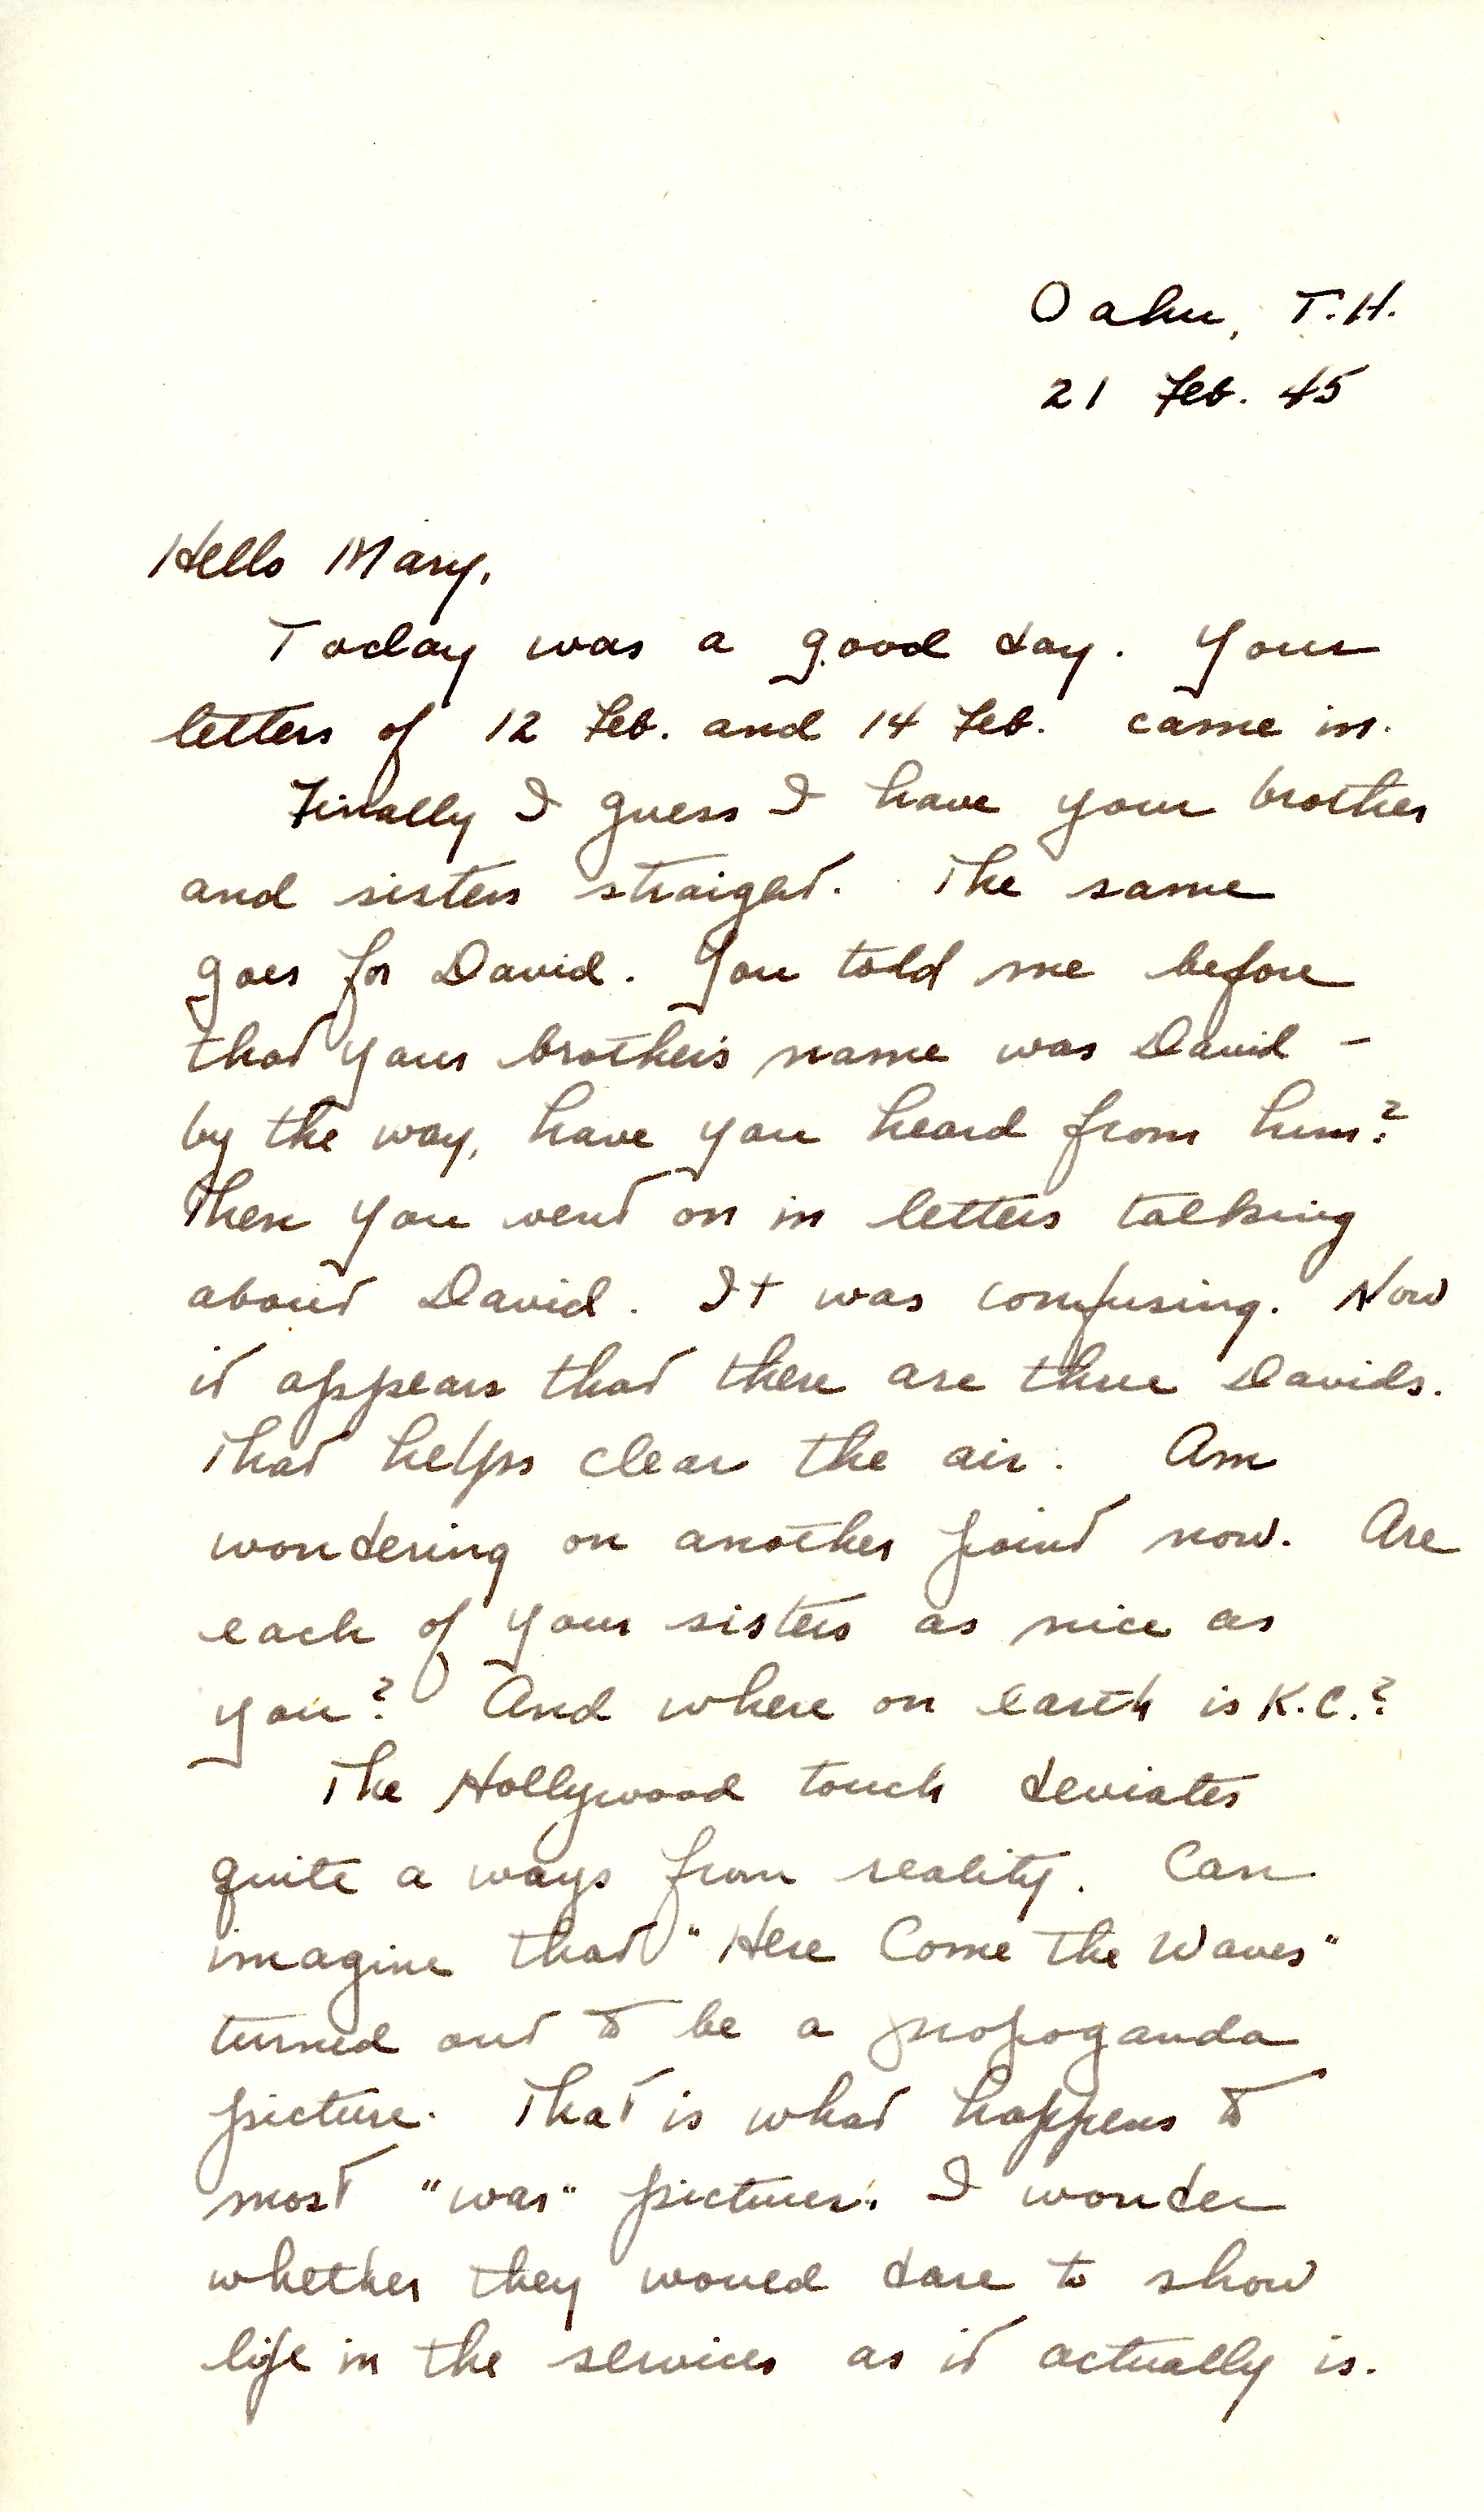 Oahu, T.H.
21 Feb. 45
Hello Mary,
Today was a good day. Your
letters of 12 Feb. and 14 Feb. came in.
Finally I guess I have your brother
and sisters straight. The same
goes for David. You told me before
that your brother's name was David -
by the way, have you heard from him?
Then you went on in letters talking
about David. It was confusing. Now
it appears that there are three Davids.
That helps clear the air. Am
wondering on another point now. Are
each of your sisters as nice as
you? And where on earth is K.C.?
The Hollywood touch deviates
quite a ways from reality. Can
imagine that "Here Come the Waves"
turned out to be a propoganda
picture. That is what happens to
most "war" pictures. I wonder
whether they would dare to show
life in the services as it actually is.